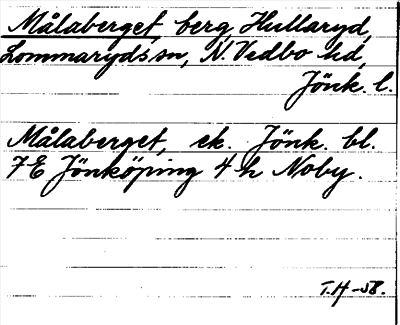 Målaberget, berg, Hullaryd,
Lommaryds sn, N. Vedbo hd,
Jönk. l.
Målaberget, ek. Jönk. bl.
7E Jönköping 4 h Noby.
T.H -58.